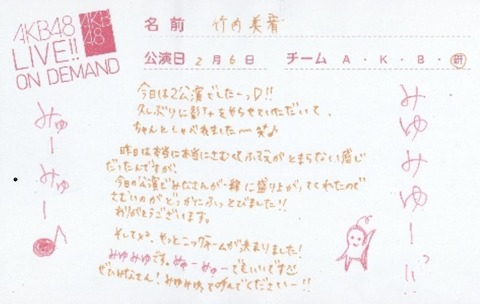 AKB48
LIVE!!
ON DEMAND
AKB
48
名前 竹内美宥
公演日 2月6日 チーム A・K・B・研
今日は2公演でしたーっ!!
久しぶりに影ナをやらせていただいて、
ちゃんとしゃべれましたー
昨日は本当に本当にさむくてふるえがとまらない感じ
だったんですが、
今日の公演でみなさんが一緒に盛り上がってくれたので
さむいのがどっかにふっとびました!!
ありがとうございます。
そして×2、やっとニックネームが決まりました!
みゆみゆです。みゅーみゅーでもいいです
ぜひみなさん!みゆみゆって呼んでくださいー!!
みゅーみゅー♪
みゆみゆー!!